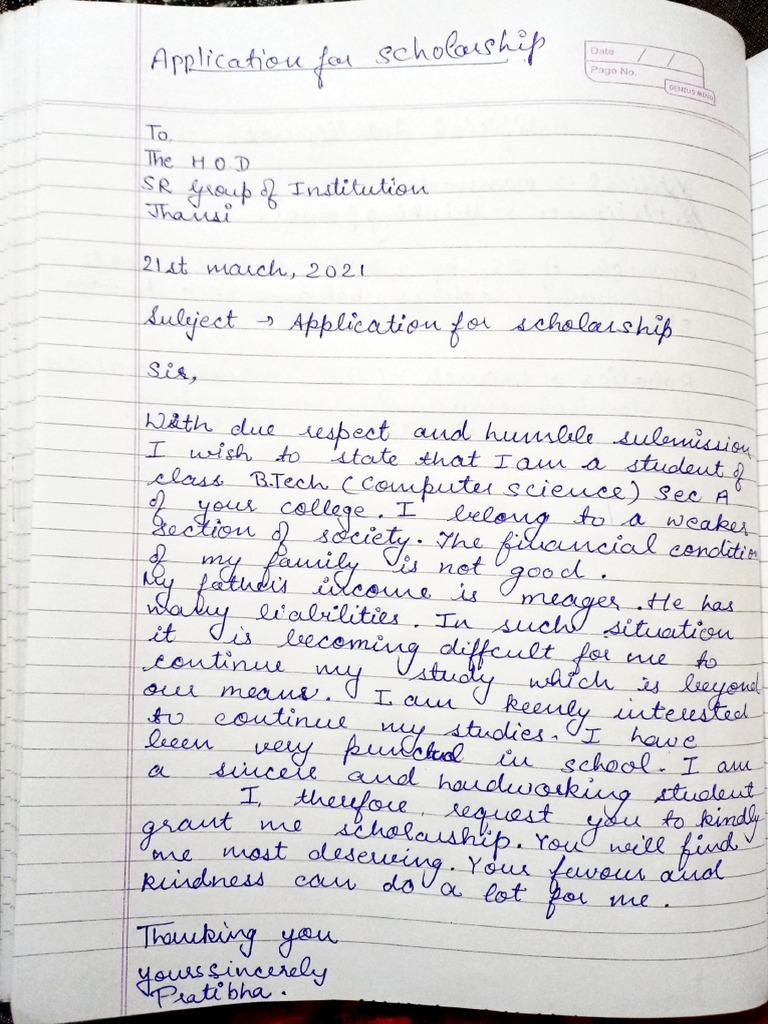 Application for scholarship
Date / /
Page No.
GENIUS MIND
To,
The H.O.D
SR Group of Institution
Jhansi
21st march, 2021
Subject → Application for scholarship
Sir,
With due respect and humble submission
I wish to state that I am a student of
class B.Tech (Computer science) Sec A
of your college. I belong to a weaker
section of society. The financial condition
of my family is not good.
My father's income is meager. He has
many liabilities. In such situation
it is becoming diffcult for me to
continue my study which is beyond
our means. I am keenly interested
to continue my studies. I have
been very punctual in school. I am
a sincere and hardworking student
I, therefore, request you to kindly
grant me scholarship. You will find
me most deserving. Your favour and
kindness can do a lot for me.
Thanking you
yours sincerely
Pratibha.